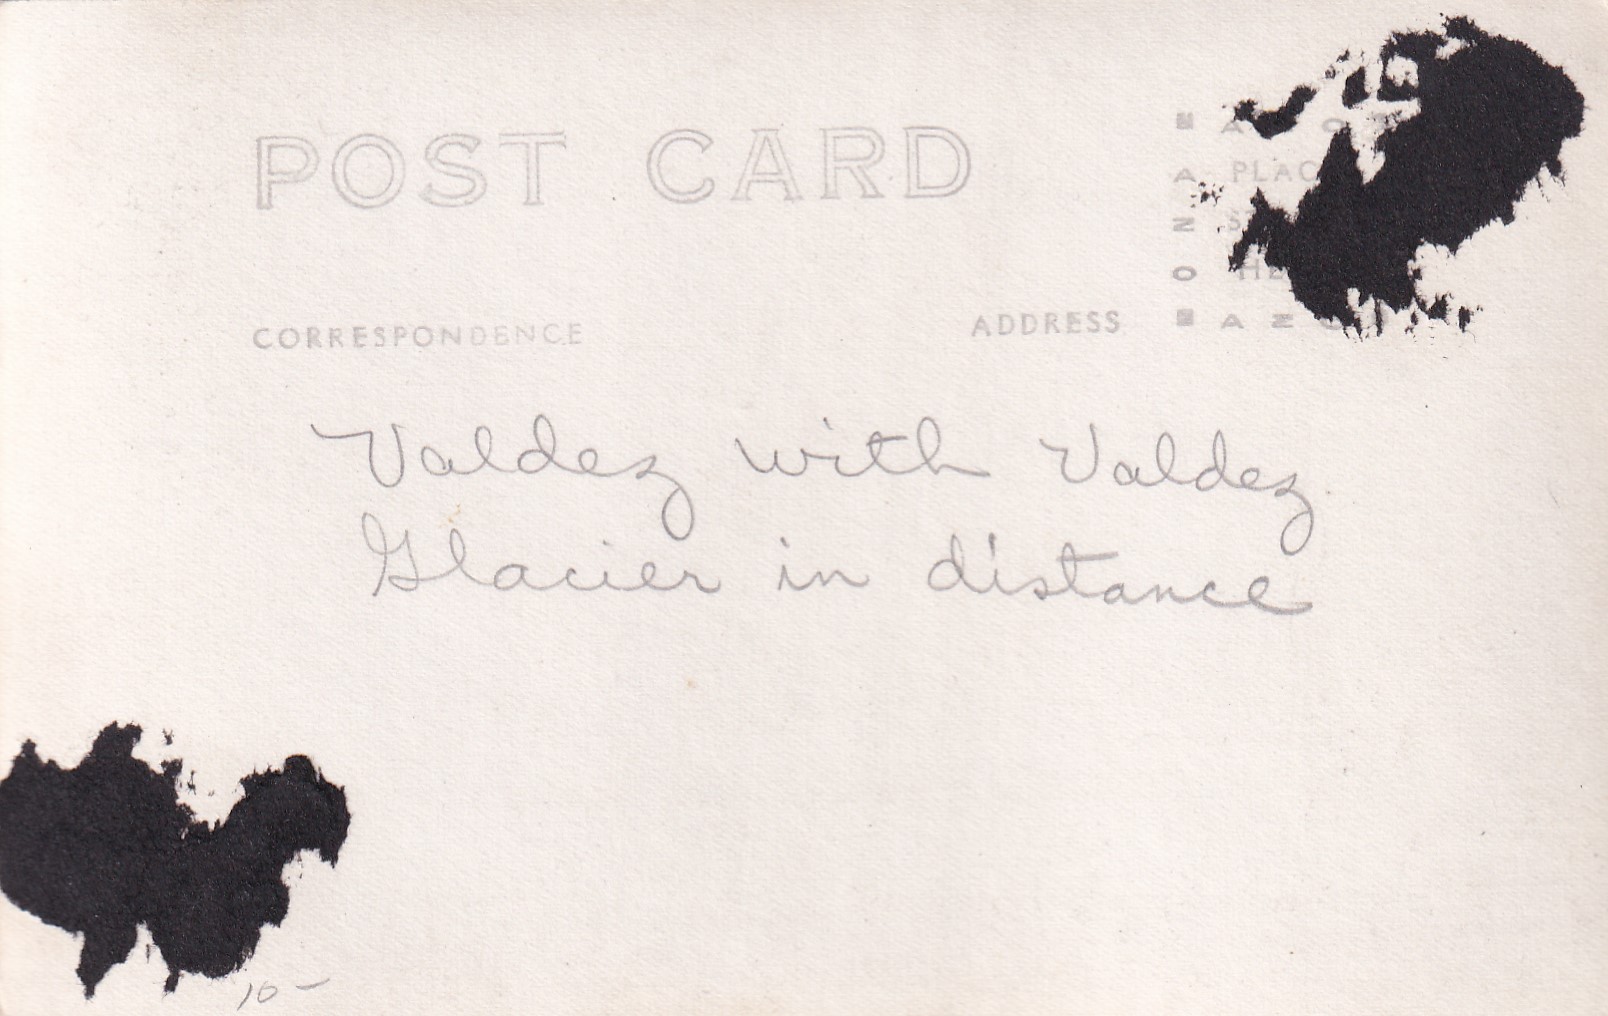 POST CARD
PLAC
CORRESPONDENCE
ADDRESS
Valdez with Valdez
Glacier in distance
10-